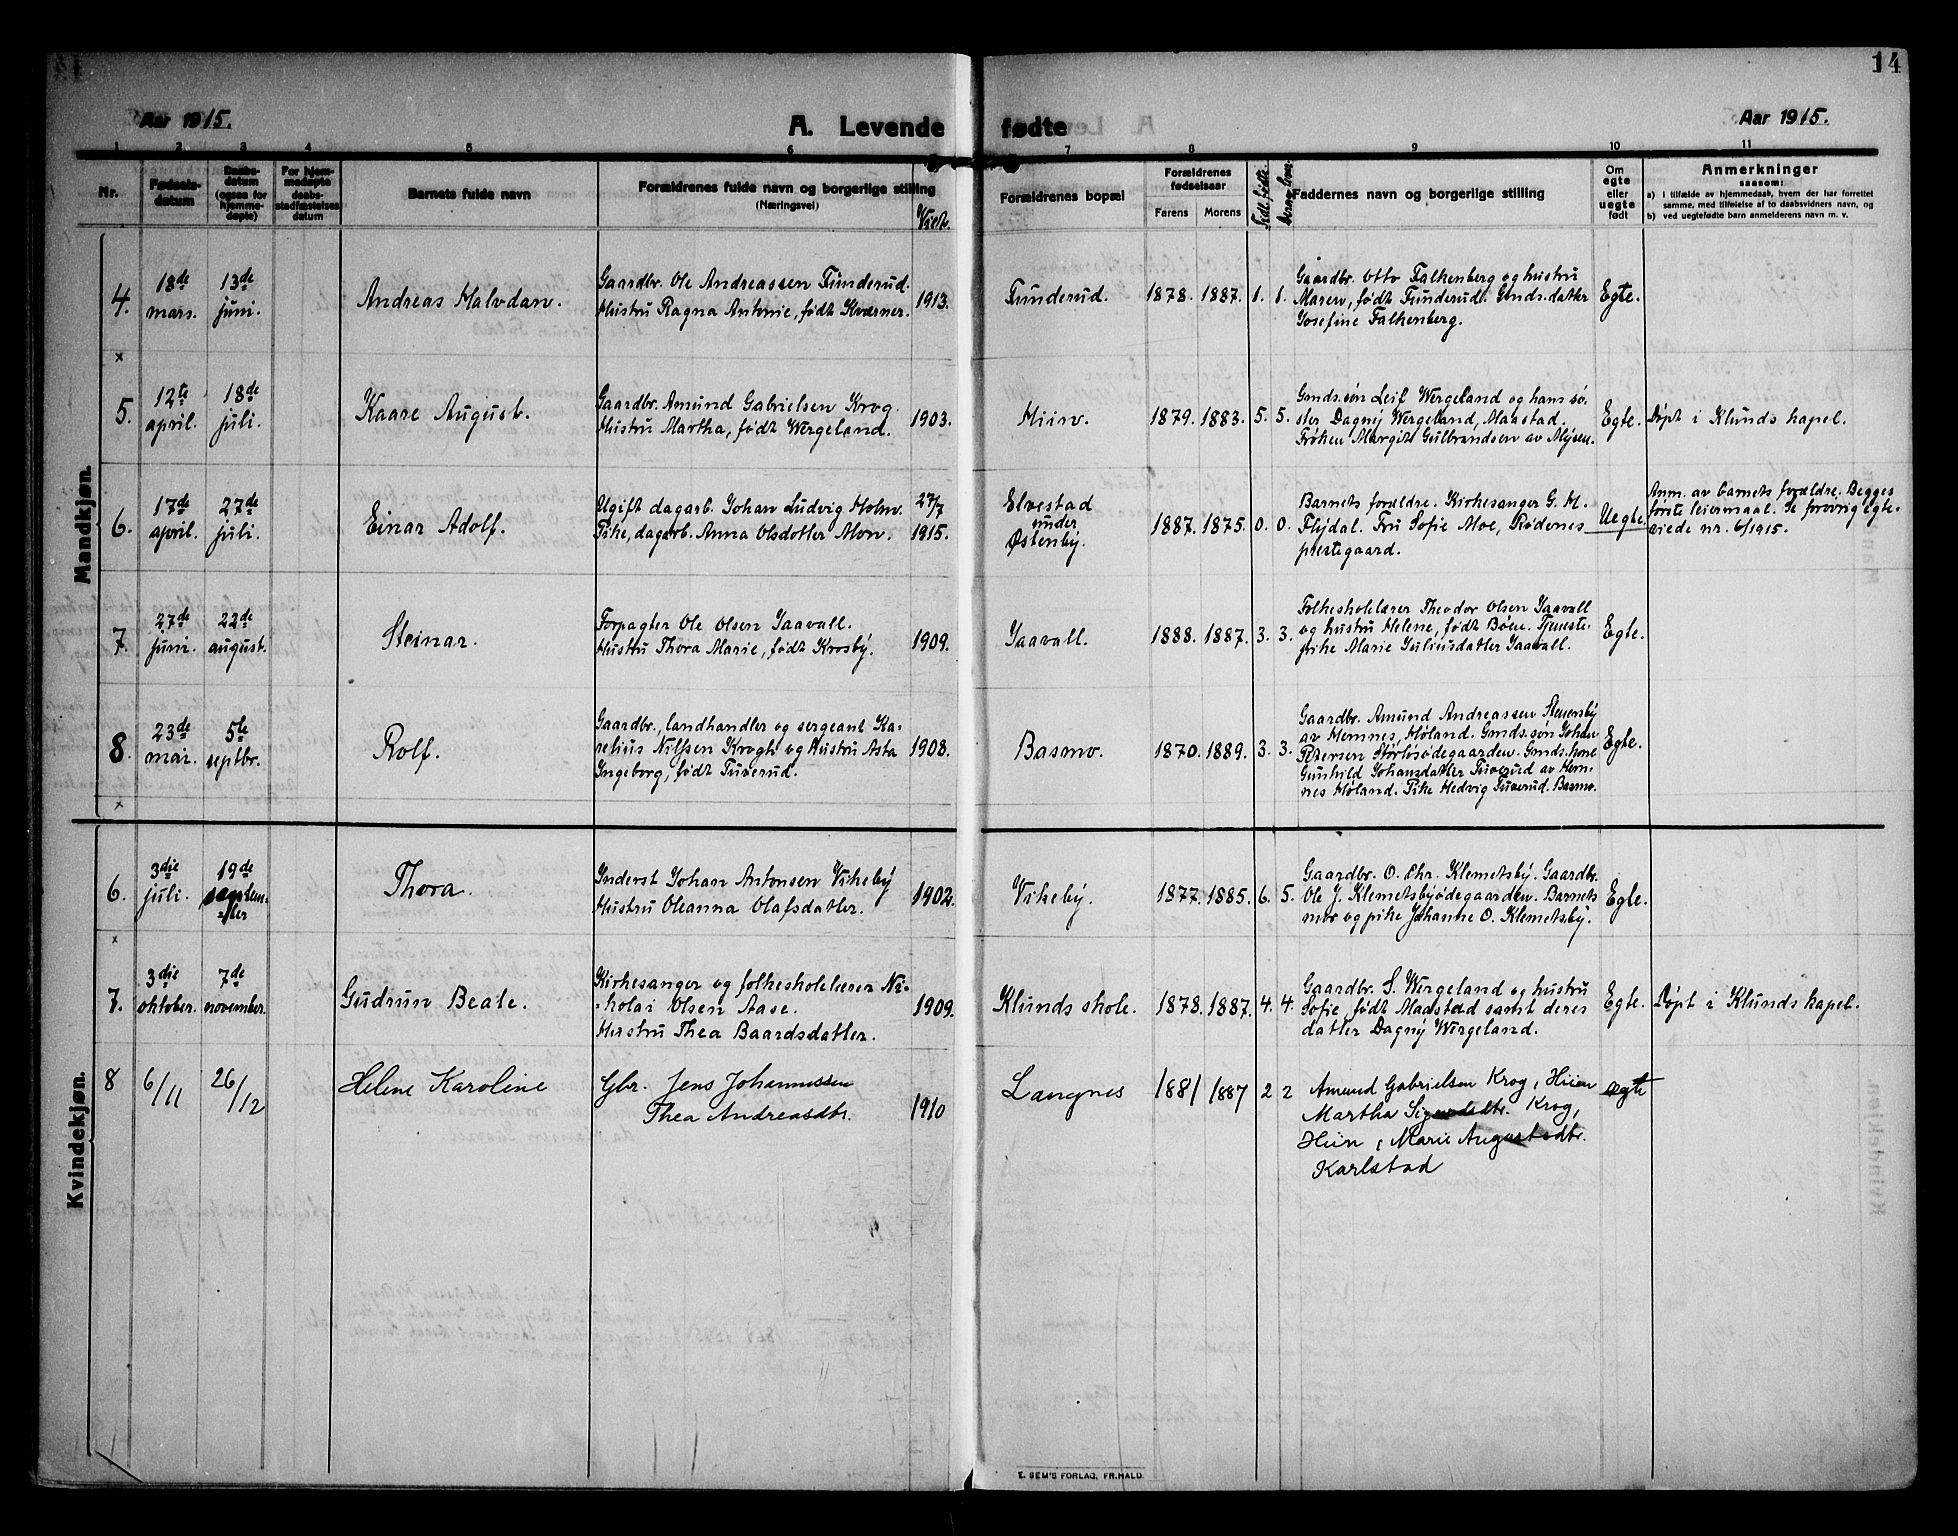 14
Aar 1915.
A. Levende fødte
Aar 1915.
1 2 3 4 5 6 7 8 9 10 11
Nr.
Fødsels-
datum
Daabs-
datum
(ogsaa for
hjemme-
døpte)
For hjem-
medøpte
daabs-
stadfæstelses
datum
Barnets fulde navn
Forældrenes fulde navn og borgerlige stilling
(Næringsvei)
Viet.
Forældrenes bopæl
Forældrenes
fødselsaar
Farens Morens
Tidl. fødte.
Faddernes navn og borgerlige stilling
Om
egte
eller
uegte
født
Anmerkninger
saasom:
a) i tilfælde av hjemmedaab, hvem der har forrettet
samme, med tilføielse af to daabsvidners navn, og
b) ved uegtefødte barn anmelderens navn m. v.
Mandkjøn.
4.
18de
mars.
13de
juni.
Andreas Halvdan.
Gaardbr. Ole Andreassen Funderud.
Hustru Ragna Antonie, født Kværner.
1913.
Funderud.
1878. 1887. 1. 1.
Gaardbr. Otto Falkenberg og hustru
Maren, født Funderud. Gmds.datter
Josefine Falkenberg.
Egte.
x
5.
12te
april.
18de
juli.
Kaare August.
Gaardbr. Amund Gabrielsen Krog.
Hustru Martha, født Wergeland.
1903.
Hiin.
1879. 1883. 5. 5.
Gmds.søn Leif Wergeland og hans sø-
ster Dagny Wergeland, Maastad.
Frøken Margit Gulbrandsen av Mysen.
Egte.
Døpt i Klunds kapel.
6.
17de
april.
27de
juli.
Einar Adolf.
Ugift dagarb. Johan Ludvig Holm.
Pike, dagarb. Anna Olsdatter Mon.
27/7
1915.
Elvestad
under
Østenby.
1887. 1875. 0. 0.
Barnets forældre. Kirkesanger G. M.
Flydal. Fru Sofie Moe, Rødenes
prestegaard.
Uegte.
Anm. av barnets forældre. Begges
første leiermaal. Se forøvrig egte-
viede nr. 6/1915.
7.
27de
juni.
22de
august.
Steinar.
Forpagter Ole Olsen Jaavall.
Hustru Thora Marie, født Krosby.
1909.
Jaavall.
1888. 1887. 3. 3.
Folkeskolelærer Theodor Olsen Jaavall
og hustru Helene, født Bøen. Tjeneste-
pike Marie Juliusdatter Jaavall.
Egte.
8.
23de
mai.
5te
septbr.
Rolf.
Gaardbr., landhandler og sergeant Ka-
relius Nilssen Krogh og Hustru Asta
Ingeborg, født Tuverud.
1908.
Basmo.
1870. 1889. 3. 3.
Gaardbr. Amund Andreassen Stenersby
av Hemnes, Høland. Gmds.søn Johan
Petersen Störlisødegaarden. Gmds. kone
Gunhild Johansdatter Tuverud av Hem-
nes Høland. Pike Hedvig Tuverud. Basmo.
Egte.
x
Kvindekjøn.
6.
3die
juli.
19de
septem-
ber
Thora.
Inderst Johan Antonsen Vikeby
Hustru Oleanna Olafsdatter.
1902.
Vikeby.
1877. 1885. 6. 5.
Gaardbr. O. Chr. Klemetsby. Gaardbr.
Ole J. Klemetsbyødegaarden. Barnets
mor og pike Johanne O. Klemetsby.
Egte.
x
7.
3die
oktober.
7de
november.
Gudrun Beate.
Kirkesanger og folkeskolelærer Ni-
kolai Olsen Aase.
Hustru Thea Baardsdatter.
1909.
Klunds skole.
1878. 1887. 4. 4.
Gaardbr. S. Wergeland og hustru
Sofie, født Maastad samt deres
datter Dagny Wergeland.
Egte.
Døpt i Klunds kapel.
8
6/11
26/12
Helene Karoline
Gbr. Jens Johannessen
Thea Andreasdtr.
1910
Langnes
1881 1887 2 2
Amund Gabrielsen Krog, Hiin
Martha Sigurdsdtr. Krog,
Hiin, Marie Augustsdtr.
Karlstad
ægte
E. SEM'S FORLAG, FR.HALD.